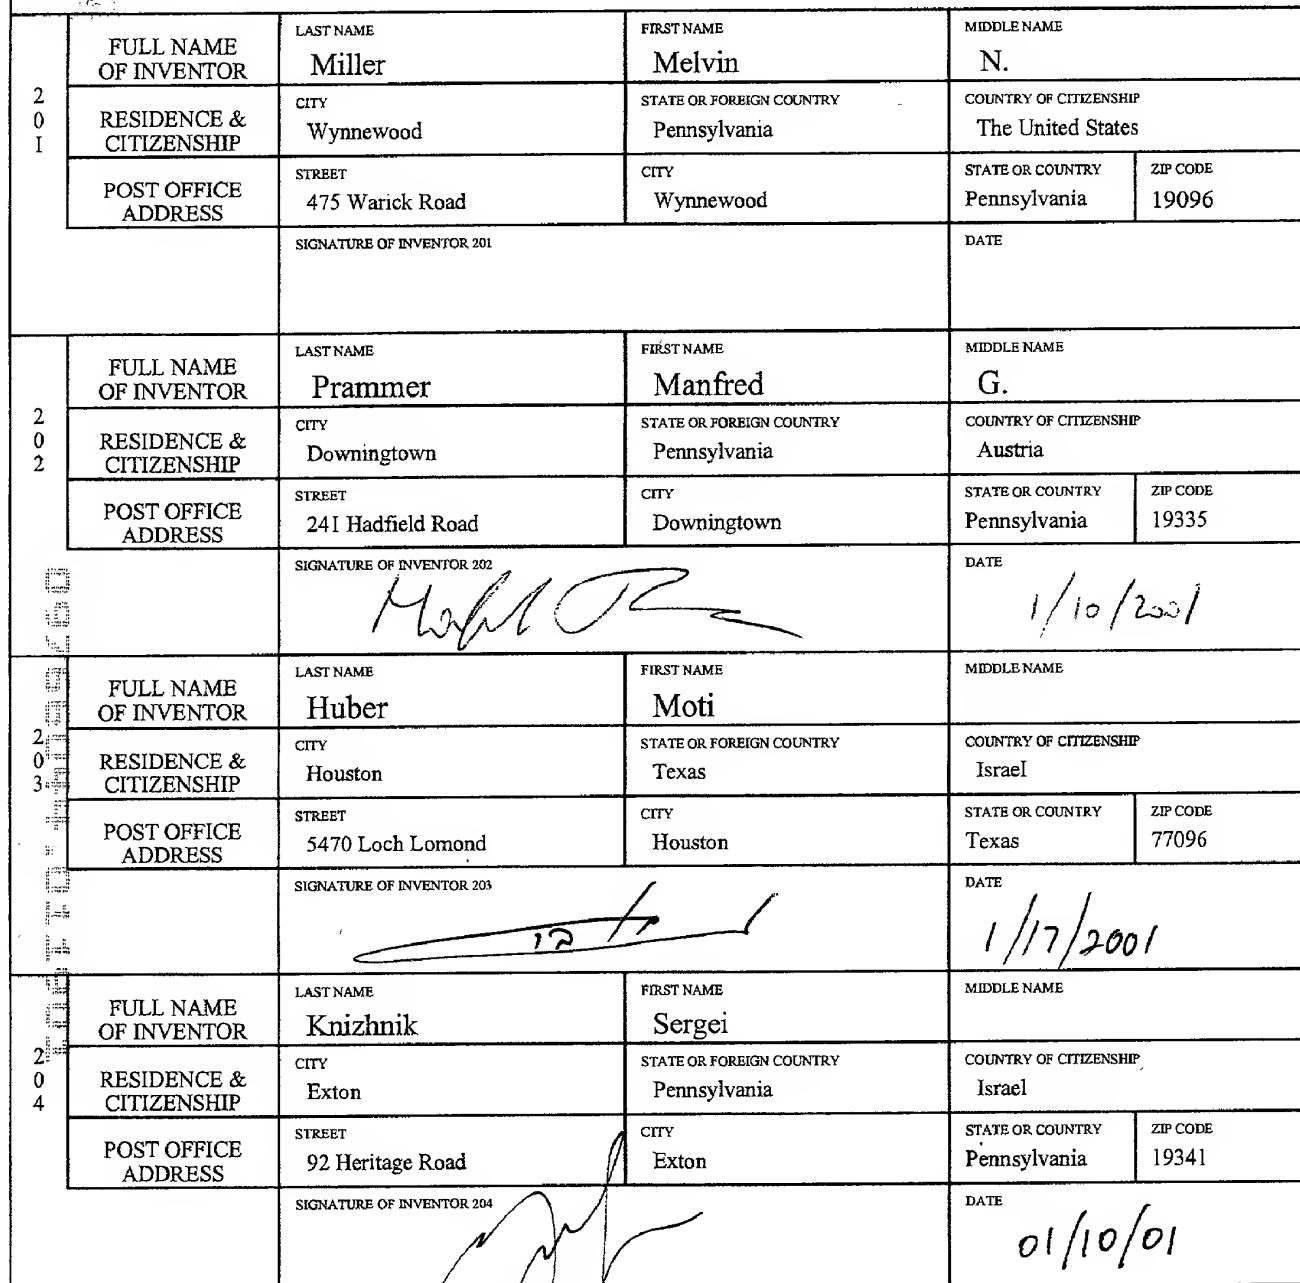 201
FULL NAME OF INVENTOR
LAST NAME
Miller
FIRST NAME
Melvin
MIDDLE NAME
N.
RESIDENCE & CITIZENSHIP
CITY
Wynnewood
STATE OR FOREIGN COUNTRY
Pennsylvania
COUNTRY OF CITIZENSHIP
The United States
POST OFFICE ADDRESS
STREET
475 Warick Road
CITY
Wynnewood
STATE OR COUNTRY
Pennsylvania
ZIP CODE
19096
SIGNATURE OF INVENTOR 201
DATE
202
FULL NAME OF INVENTOR
LAST NAME
Prammer
FIRST NAME
Manfred
MIDDLE NAME
G.
RESIDENCE & CITIZENSHIP
CITY
Downingtown
STATE OR FOREIGN COUNTRY
Pennsylvania
COUNTRY OF CITIZENSHIP
Austria
POST OFFICE ADDRESS
STREET
241 Hadfield Road
CITY
Downingtown
STATE OR COUNTRY
Pennsylvania
ZIP CODE
19335
SIGNATURE OF INVENTOR 202
DATE
1/10/2001
203
FULL NAME OF INVENTOR
LAST NAME
Huber
FIRST NAME
Moti
MIDDLE NAME
RESIDENCE & CITIZENSHIP
CITY
Houston
STATE OR FOREIGN COUNTRY
Texas
COUNTRY OF CITIZENSHIP
Israel
POST OFFICE ADDRESS
STREET
5470 Loch Lomond
CITY
Houston
STATE OR COUNTRY
Texas
ZIP CODE
77096
SIGNATURE OF INVENTOR 203
DATE
1/17/2001
204
FULL NAME OF INVENTOR
LAST NAME
Knizhnik
FIRST NAME
Sergei
MIDDLE NAME
RESIDENCE & CITIZENSHIP
CITY
Exton
STATE OR FOREIGN COUNTRY
Pennsylvania
COUNTRY OF CITIZENSHIP
Israel
POST OFFICE ADDRESS
STREET
92 Heritage Road
CITY
Exton
STATE OR COUNTRY
Pennsylvania
ZIP CODE
19341
SIGNATURE OF INVENTOR 204
DATE
01/10/01